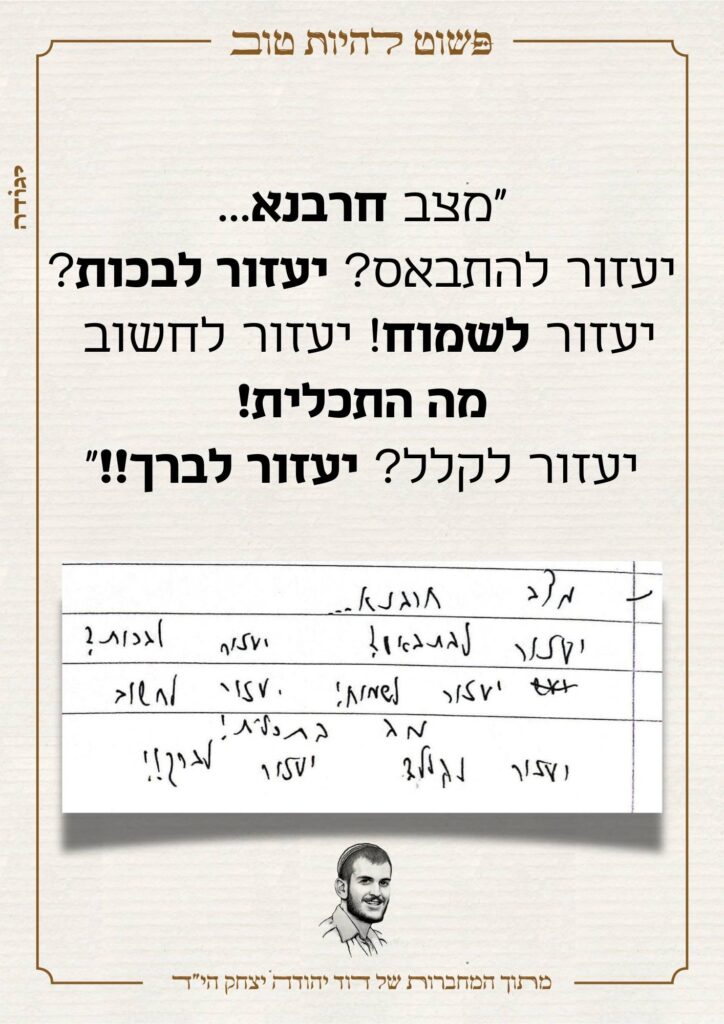 פשוט להיות טוב
יגודה
"מצב חרבנא...
יעזור להתבאס? יעזור לבכות?
יעזור לשמוח! יעזור לחשוב
מה התכלית!
יעזור לקלל? יעזור לברך!!"
מצב חרבנא...
יעזור להתבאס? יעזור לבכות?
יעזור לשמוח! יעזור לחשוב
מה התכלית!
יעזור לקלל? יעזור לברך!!
מתוך המחברות של דוד יהודה יצחק הי"ד